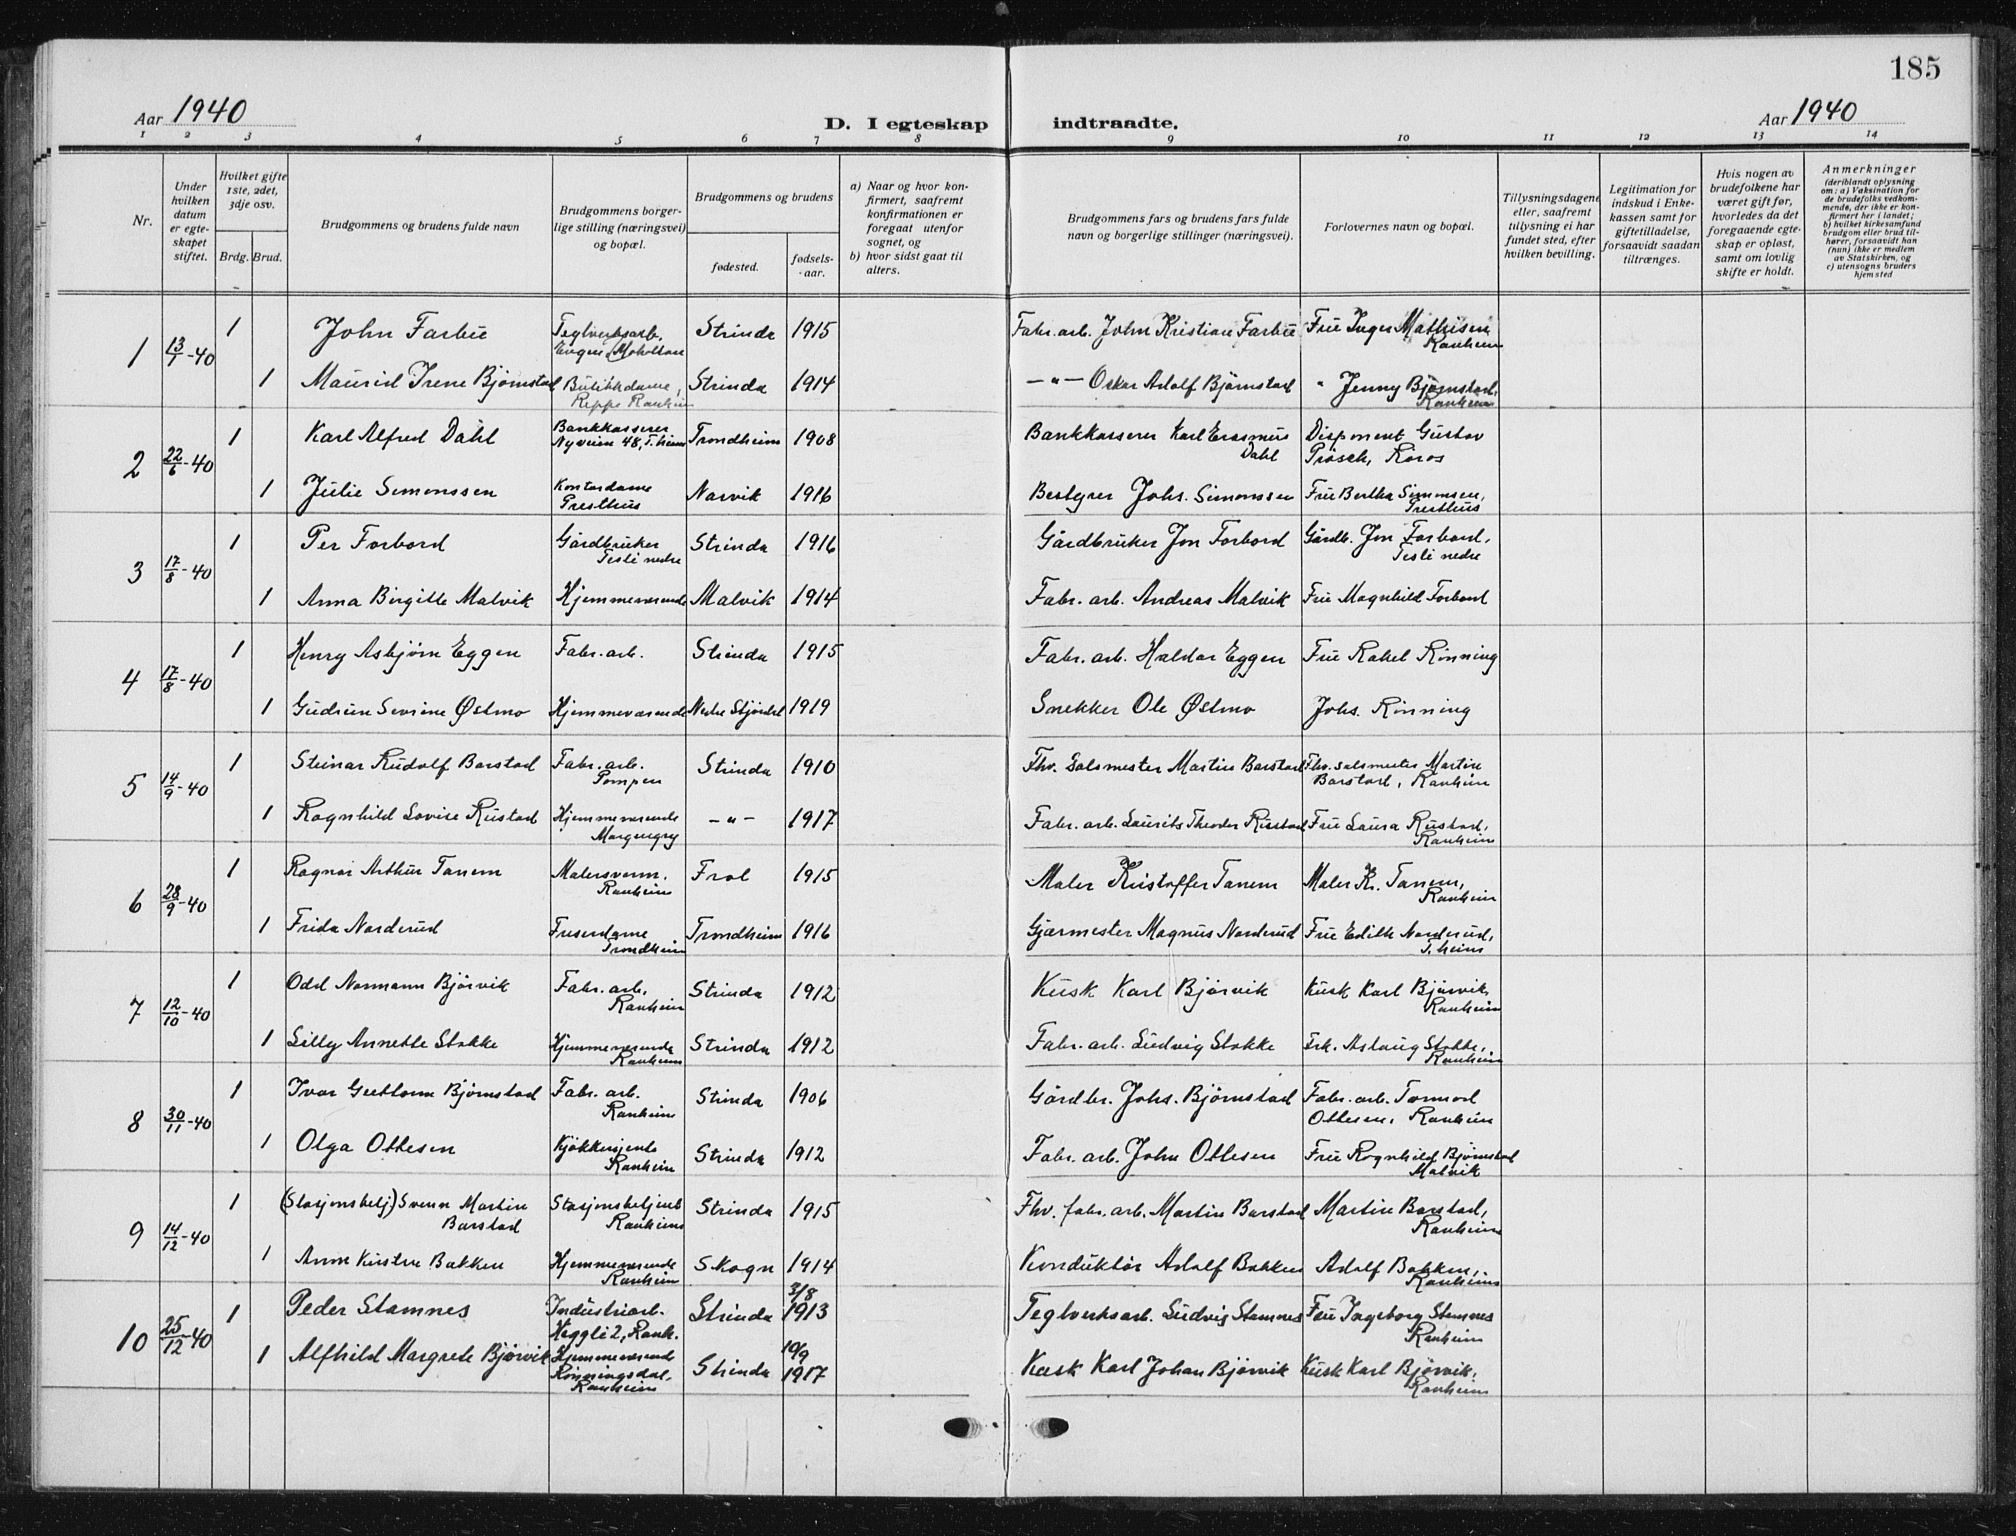 185
Aar 1940
D. I egteskap indtraadte.
Aar 1940
1 2 3 4 5 6 7 8 9 10 11 12 13 14
Nr.
Under
hvilken
datum
er egte-
skapet
stiftet.
Hvilket gifte
1ste, 2det,
3dje osv.
Brdg. Brud.
Brudgommens og brudens fulde navn
Brudgommens borger-
lige stilling (næringsvei)
og bopæl.
Brudgommens og brudens
fødested.
fødsels-
-aar.
a) Naar og hvor kon-
firmert, saafremt
konfirmationen er
foregaat utenfor
sognet, og
b) hvor sidst gaat til
alters.
Brudgommens fars og brudens fars fulde
navn og borgerlige stillinger (næringsvei).
Forlovernes navn og bopæl.
Tillysningsdagene
eller, saafremt
tillysning ei har
fundet sted, efter
hvilken bevilling.
Legitimation for
indskud i Enke-
kassen samt for
giftetilladelse,
forsaavidt saadan
tiltrænges.
Hvis nogen av
brudefolkene har
været gift før,
hvorledes da det
foregaaende egte-
skap er opløst,
samt om lovlig
skifte er holdt.
Anmerkninger
(deriblandt oplysning
om: a) Vaksination for
de brudefolks vedkom-
mende, der ikke er kon-
firmert her i landet;
b) hvilket kirkesamfund
brudgom eller brud til-
hører, forsaavidt han
(hun) ikke er medlem
av Statskirken, og
c) utensogns bruders
hjemsted
1 13/1-40 1 John Farbu Teglverksarb. Strinda 1915 Fabr. arb. John Kristian Farbu Fru Inger Mathisen
Ranheim
1 Maurid Irene Bjørnstad Butikkdame, Strinda 1914 —„— Oskar Adolf Bjørnstad „ Jenny Bjørnstad,
Reppe Ranheim Ranheim
2 22/6-40 1 Karl Alfred Dahl Bankkasserer Trondheim 1908 Bankkasserer Karl Erasmus Disponent Gustav
Nyveien 48, T.heim Dahl Prøsch, Røros
1 Julie Simonssen Kontordame Narvik 1916 Bestyrer Johs. Simonssen Fru Bertha Simonsen,
Presthus Presthus
3 17/8-40 1 Per Forbord Gårdbruker Strinda 1916 Gårdbruker Jon Forbord Gårdb. Jon Forbord,
Tesli nedre Tesli nedre
1 Anna Birgitte Malvik Hjemmeværende Malvik 1914 Fabr. arb. Andreas Malvik Fru Magnhild Forbord
4 17/8-40 1 Henry Asbjørn Eggen Fabr. arb. Strinda 1915 Fabr. arb. Haldor Eggen Fru Rakel Rønning
1 Gudrun Sevrine Østmo Hjemmeværende Nedre Stjørdal 1919 Snekker Ole Østmo Johs. Rønning
5 14/9-40 1 Steinar Rudolf Barstad Fabr. arb. Strinda 1910 Fhv. Salsmester Martin Barstad Fhv. salsmester Martin
Pompen Barstad, Ranheim
1 Ragnhild Lovise Rustad Hjemmeværende —„— 1917 Fabr. arb. Laurits Theodor Rustad Fru Laura Rustad,
Morgengry Ranheim
6 28/9-40 1 Ragnar Arthur Tanem Malersvenn, Frol 1915 Maler Kristoffer Tanem Maler Kr. Tanem,
Ranheim Ranheim
1 Frida Norderud Friserdame Trondheim 1916 Gjærmester Magnus Norderud Fru Edith Norderud,
Trondheim T.heim
7 12/10-40 1 Odd Normann Bjørvik Fabr. arb. Strinda 1912 Kusk Karl Bjørvik Kusk Karl Bjørvik,
Ranheim Ranheim
1 Lilly Annette Stokke Hjemmeværende Strinda 1912 Fabr. arb. Ludvig Stokke Frk. Aslaug Stokke,
Ranheim Ranheim
8 30/11-40 1 Ivar Guttorm Bjørnstad Fabr. arb. Strinda 1906 Gårdbr. Johs. Bjørnstad Fabr. arb. Tormod
Ranheim Ottesen, Ranheim
1 Olga Ottesen Kjøkkenjente Strinda 1912 Fabr. arb. John Ottesen Fru Ragnhild Bjørnstad
Ranheim Malvik
9 14/12-40 1 (Stasjonsbetj) Svenn Martin Stasjonsbetjent Strinda 1915 Fhv. fabr. arb. Martin Barstad Martin Barstad,
Barstad Ranheim Ranheim
1 Anne Kirstine Bakken Hjemmeværende Skogn 1914 Konduktør Adolf Bakken Adolf Bakken,
Ranheim Ranheim
10 25/12-40 1 Peder Stamnes Industriarb. Strinda 3/8 1913 Teglverksarb. Ludvig Stamnes Fru Ingeborg Stamnes
Heggli 2, Ranh. Ranheim
1 Alfhild Margrete Bjørvik Hjemmeværende Strinda 10/9 1917 Kusk Karl Johan Bjørvik Kusk Karl Bjørvik,
Rønningsdal, Ranheim
Ranheim